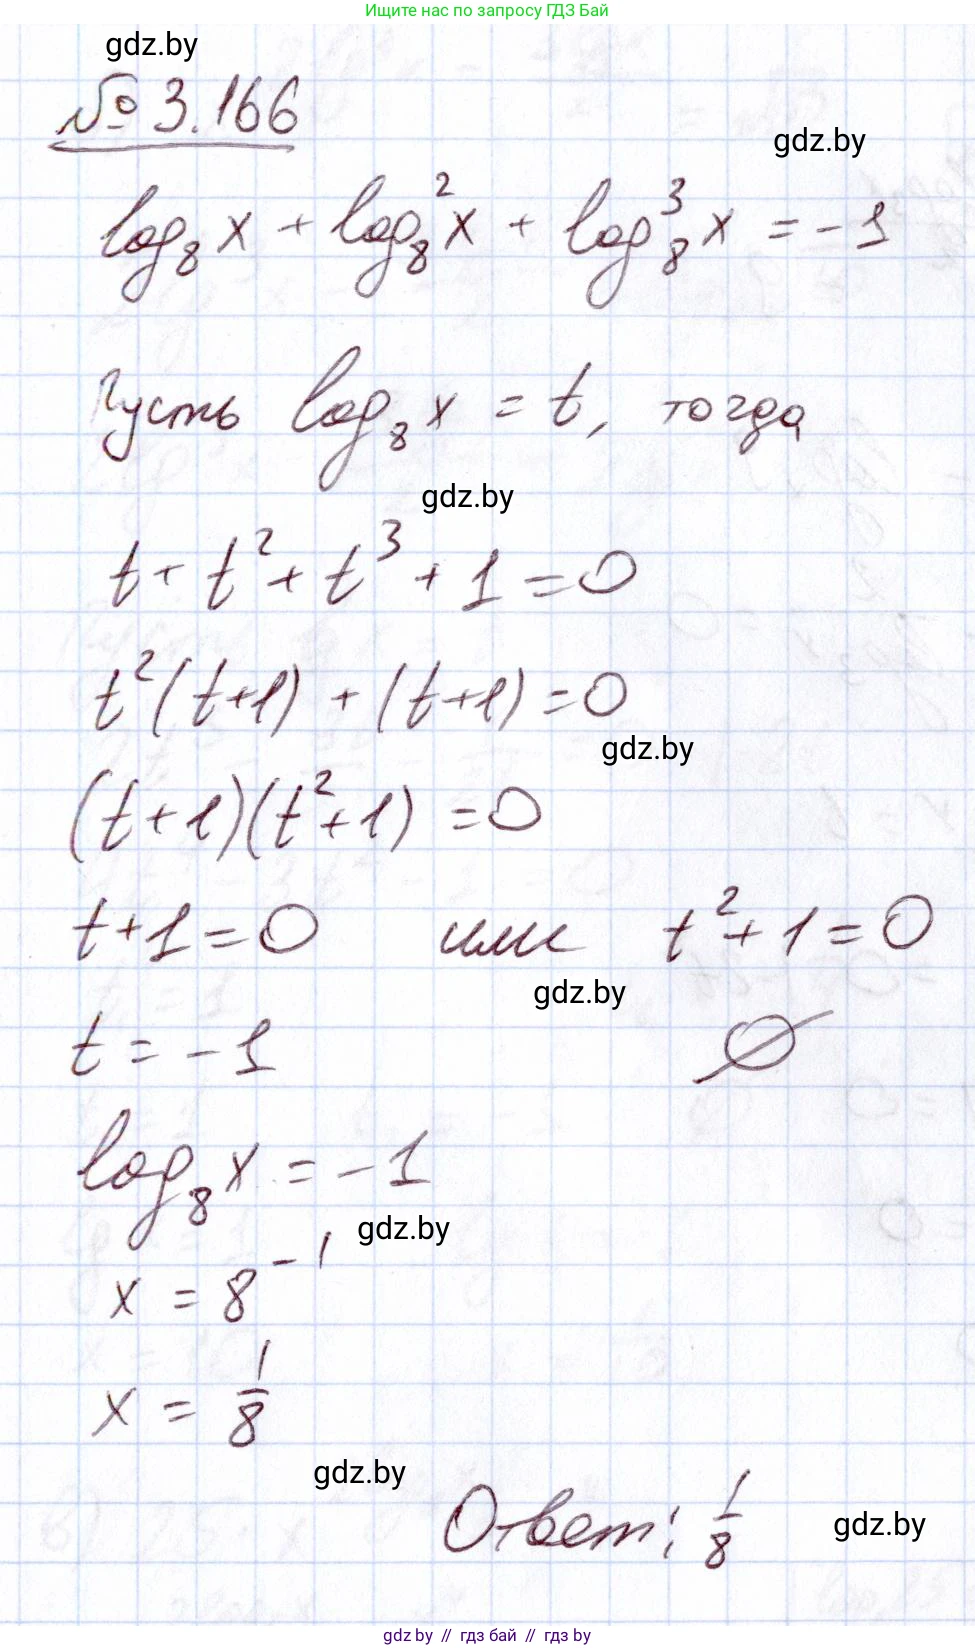 Ищите нас по запросу ГДЗ Бай
gdz.by
№ 3.166
gdz.by
log₈ x + log₈² x + log₈³ x = -1
Пусть log₈ x = t, тогда
gdz.by
t + t² + t³ + 1 = 0
t²(t+1) + (t+1) = 0
gdz.by
(t+1)(t²+1) = 0
t+1 = 0 или t²+1 = 0
gdz.by
t = -1 ∅
log₈ x = -1
gdz.by
x = 8⁻¹
x = 1/8
gdz.by
Ответ: 1/8
gdz.by
gdz.by // гдз бай // гдз by